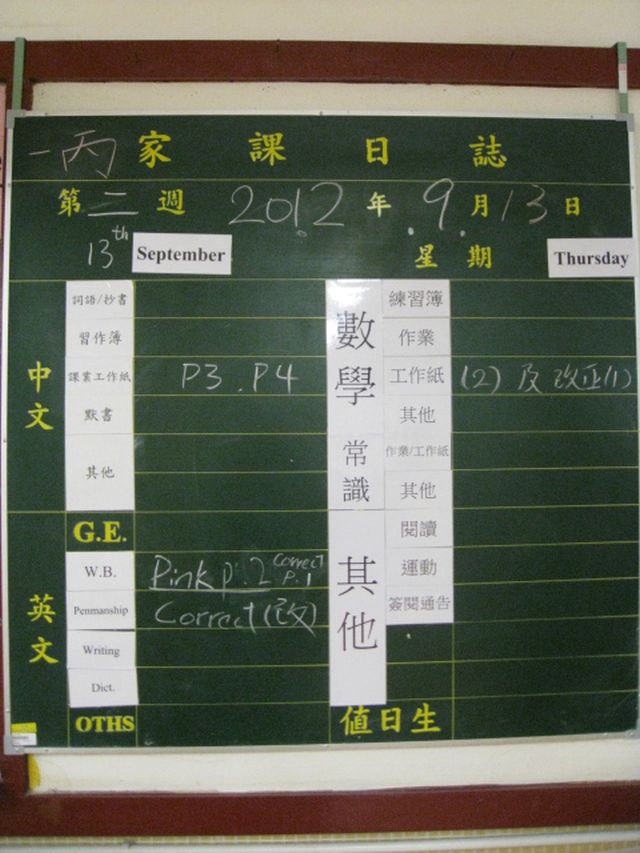 一丙 家課日誌
第二週 2012年 9月13日
13th September 星期 Thursday
中文
詞語/抄書
習作簿
課業工作紙 P3 . P4
默書
其他
英文
G.E.
W.B. Pink p.2 correct p.1
Penmanship Correct (改)
Writing
Dict.
OTHS
數學
練習簿
作業
工作紙 (2) 及改正(1)
其他
常識
作業/工作紙
其他
其他
閱讀
運動
簽閱通告
值日生